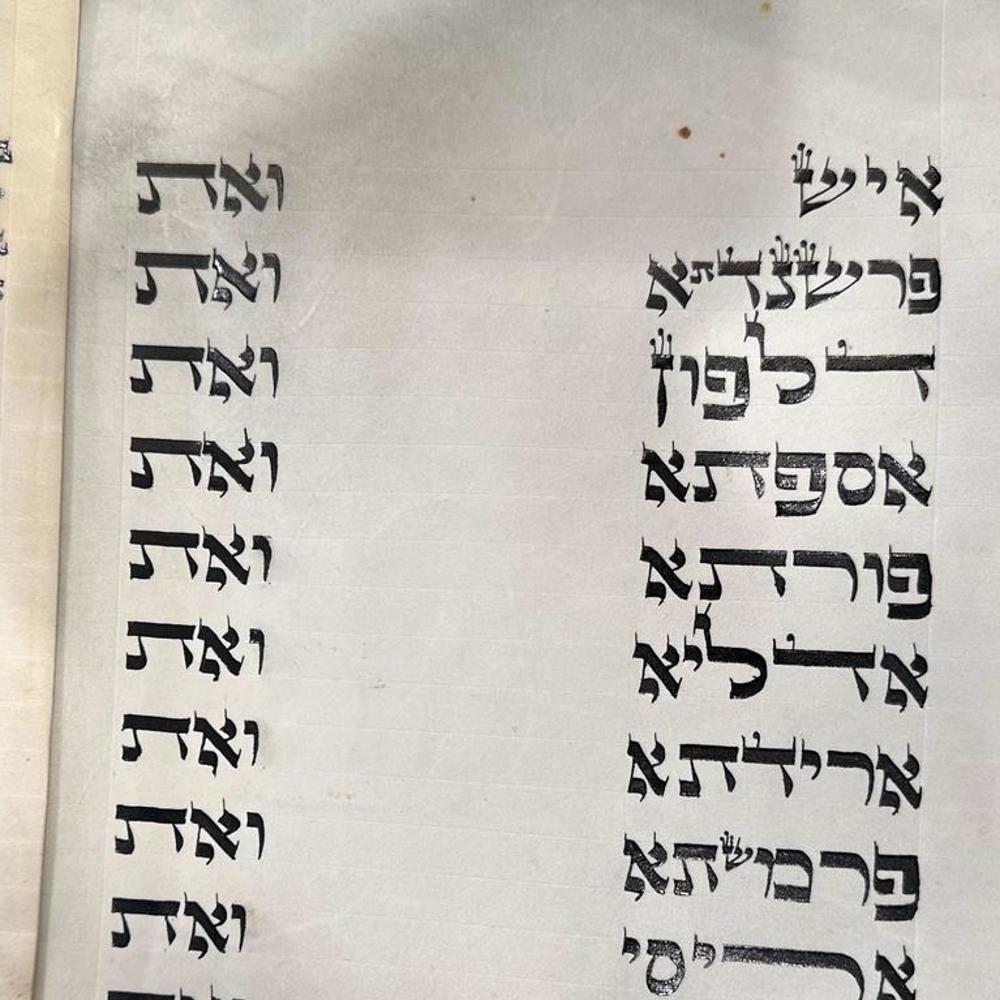 איש ואת
פרשנדתא ואת
דלפון ואת
אספתא ואת
פורתא ואת
אדליא ואת
ארידתא ואת
פרמשתא ואת
אריסי ואת